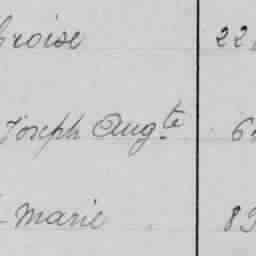 croise 22
Joseph Aug.te 6
Marie 89